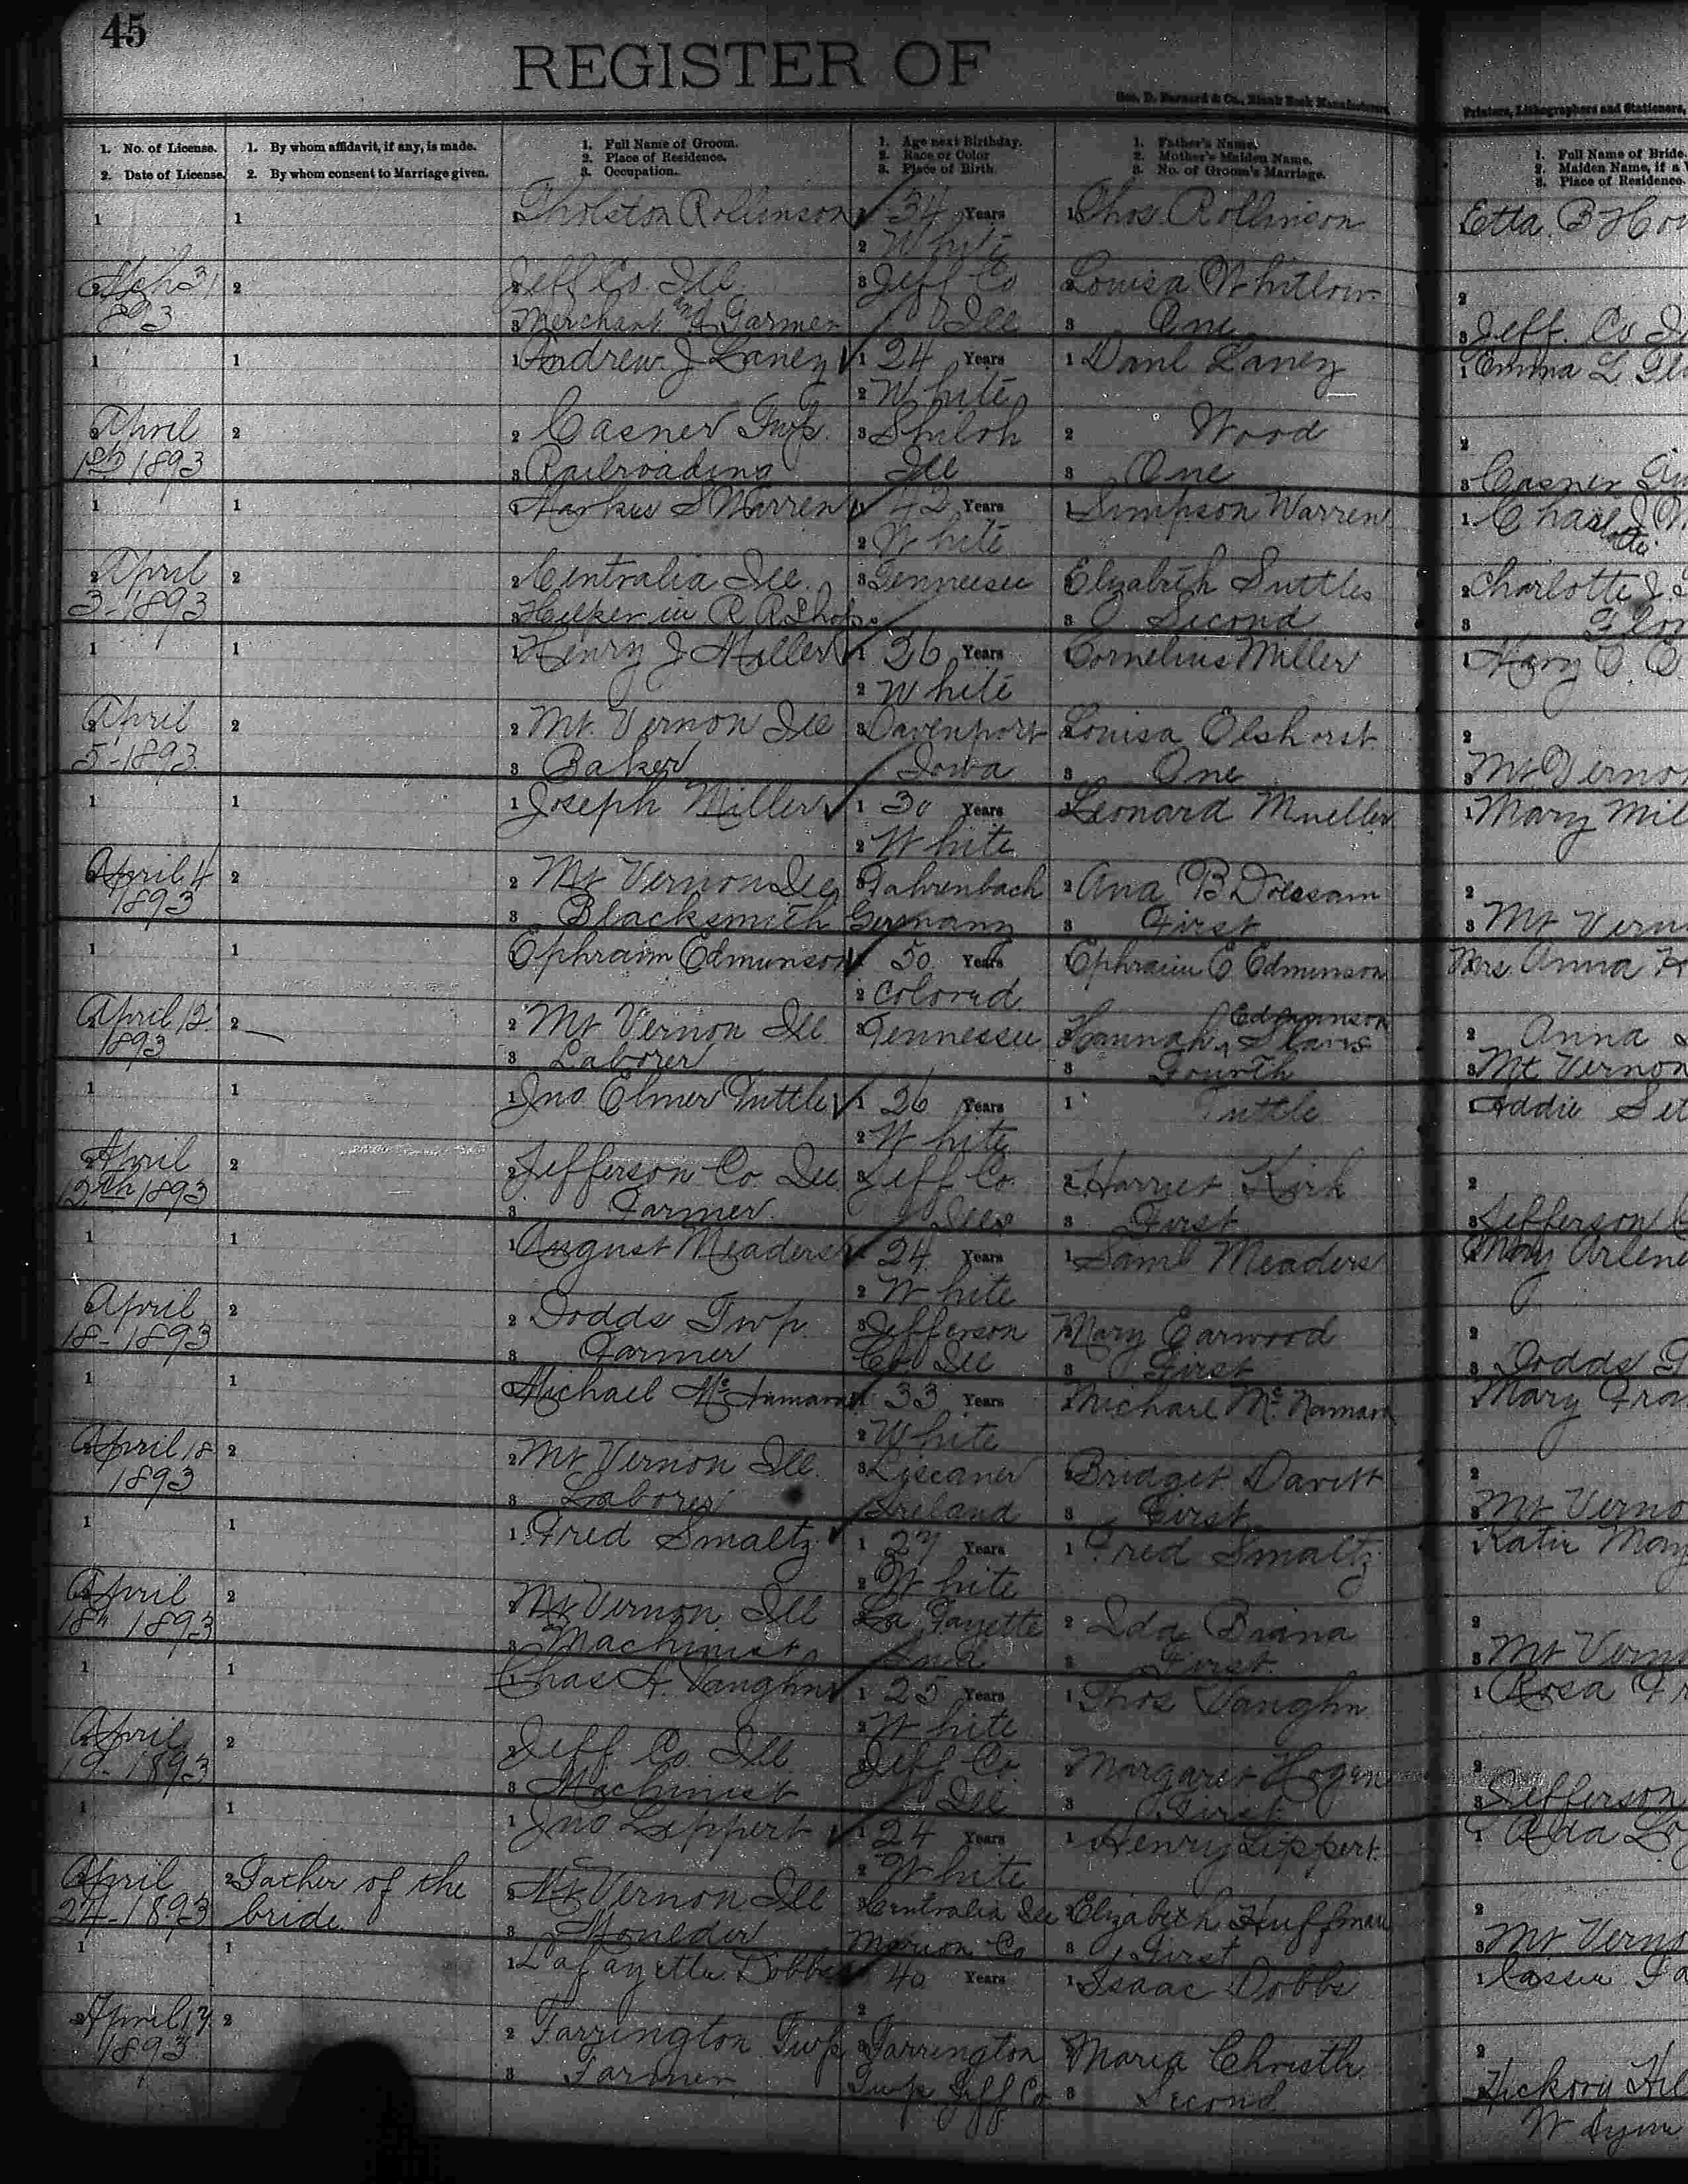 45
REGISTER OF
Geo. D. Barnard & Co., Blank Book Manufacturers,
Printers, Lithographers and Stationers,
1. No. of License.
2. Date of License.
1. By whom affidavit, if any, is made.
2. By whom consent to Marriage given.
1. Full Name of Groom.
2. Place of Residence.
3. Occupation.
1. Age next Birthday.
2. Race or Color
3. Place of Birth.
1. Father's Name.
2. Mother's Maiden Name.
3. No. of Groom's Marriage.
1. Full Name of Bride.
2. Maiden Name, if a
3. Place of Residence.
1 1 Tholston Rollinson 1 34 Years 1 Thos. Rollinson Etta B Hor
2 White
2 Mch 31 2 Jeff Co. Ill. 3 Jeff Co Louisa Whitlow 2
893 3 Merchant and Farmer Ill 3 One 3 Jeff. Co
1 1 1 Andrew J Laney 1 24 Years 1 Danl Laney 1 Emma L
2 White
2 April 2 2 Casner Twp. 3 Shiloh 2 Wood 2
1st 1893 3 Railroading Ill 3 One 3 Casner
1 1 1 Markus S Warren 1 42 Years 1 Simpson Warren 1
2 White
2 April 2 2 Centralia Ill. 3 Tennessee Elizabeth Suttles 2 Charlotte J.
3-1893 3 Helper in R R Shops 3 Second 3
1 1 1 Henry J Miller 1 26 Years Cornelius Miller 1 Mary
2 White
2 April 2 2 Mt. Vernon Ill 3 Davenport Louisa Elshorst 2
5-1893. 3 Baker Iowa 3 One 3 Mt Vernon
1 1 1 Joseph Miller 1 30 Years Leonard Mueller 1 Mary Mil
2 White
2 April 4 2 2 Mt Vernon Ill 3 Fahrenbach 2 Ana B Doessam 2
1893 3 Blacksmith Germany 3 First 3 Mt Vern
1 1 Ephraim Edmunson 1 50 Years Ephraim E Edmunson Mrs. Anna
2 Colored
2 April 12 2 2 Mt Vernon Ill 3 Tennessee Hannah Edmunson 2 Anna
1893 3 Laborer 3 Fourth 3 Mt Vernon
1 1 1 Jno Elmer Tuttle 1 26 Years 1 Tuttle 1 Addie
2 White
2 April 2 2 Jefferson Co. Ill 3 Jeff Co. 2 Harriet Kirk 2
12th 1893 3 Farmer. Ills 3 First 3 Jefferson
1 1 1 August Meaders 1 24 Years 1 Saml Meaders Mary Arlene
2 White
April 2 2 Dodds Twp. 3 Jefferson Mary Earwood 2
18-1893 3 Farmer Co Ill 3 First 3 Dodds
1 1 Michael McNamara 1 33 Years Michael McNamara Mary Fra
2 White
April 18 2 2 Mt Vernon Ill. 3 Liscaner Bridget Davitt 2
1893 3 Laborer Ireland 3 First 3 Mt Verno
1 1 1 Fred Smaltz 1 27 Years 1 Fred Smaltz Katie May
2 White
2 April 2 2 Mt Vernon Ill La Fayette 2 Ida Briana 2
18th 1893 3 Machinist Ind 3 First. 3 Mt Verno
1 1 Chas A. Vaughn 1 25 Years 1 Thos Vaughn 1 Rosa
2 White
2 April 2 2 Jeff. Co. Ill. Jeff Co. Margaret Hogen 2
19-1893 3 Machinist Ill 3 First 3 Jefferson
1 1 1 Jno Leppert 1 24 Years 1 Henry Lippert 1 Ada
2 White
April 2 Father of the 2 Mt Vernon Ill 3 Centralia Ill Elizabeth Huffman 2
24-1893 bride 3 Moulder Marion Co 3 First 3 Mt Verno
1 1 1 Lafayette Dobbs 40 Years 1 Isaac Dobbs 1
2
2 April 17 2 2 Farrington Twp 3 Farrington Maria Christle 2
1893 3 Farmer Twp Jeff Co 3 Second Hickory Hil